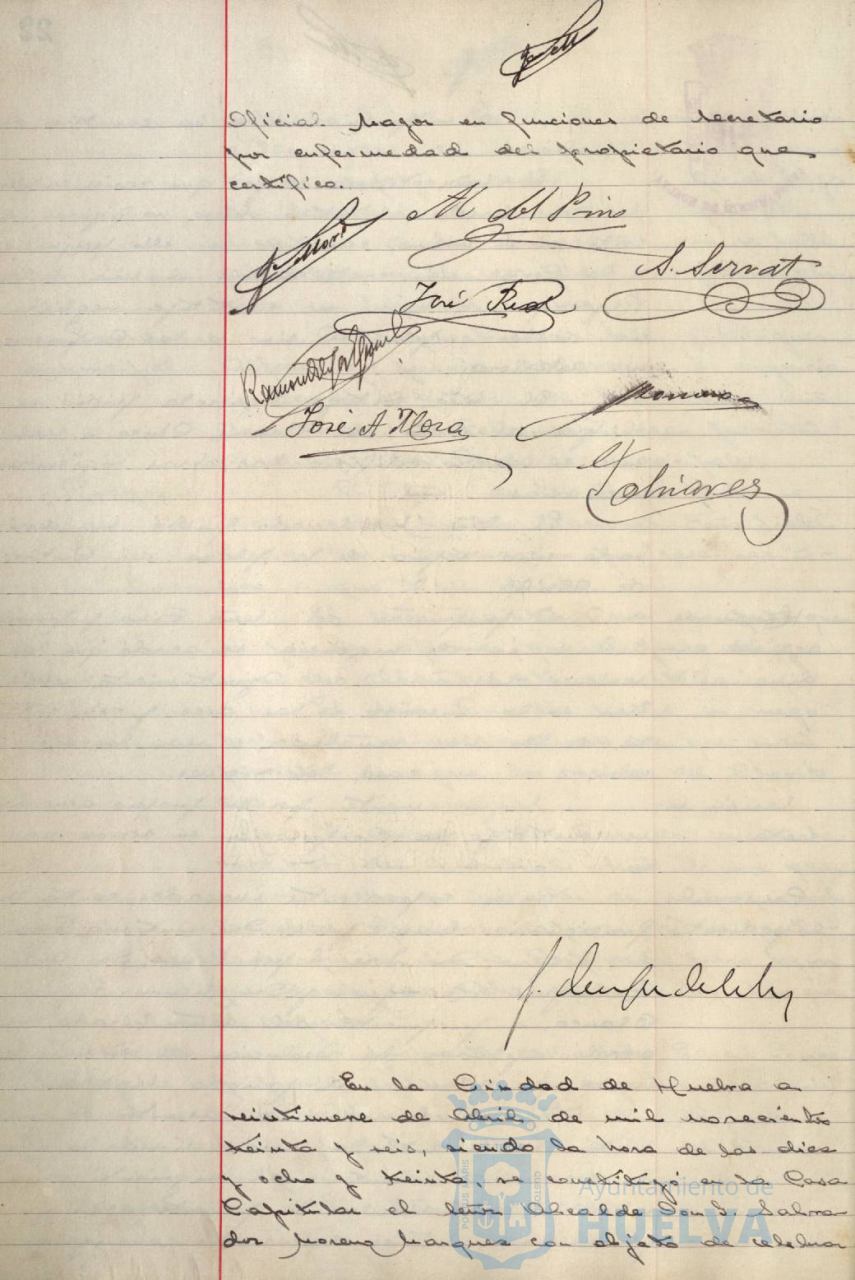 Oficial Mayor en funciones de Secretario
por enfermedad del propietario que
certifico.
M del Pino
S. Servat
José Real
José A Mora
Olivares
En la Ciudad de Huelva a
veintinueve de Abril de mil novecientos
treinta y seis, siendo la hora de las diez
y ocho y treinta, se constituyó en la Casa
Capitular el Señor Alcalde Don Salva
dor Moreno Marquez con objeto de celebrar
PORTUS MARIS
CUSTODIA
Ayuntamiento de
HUELVA